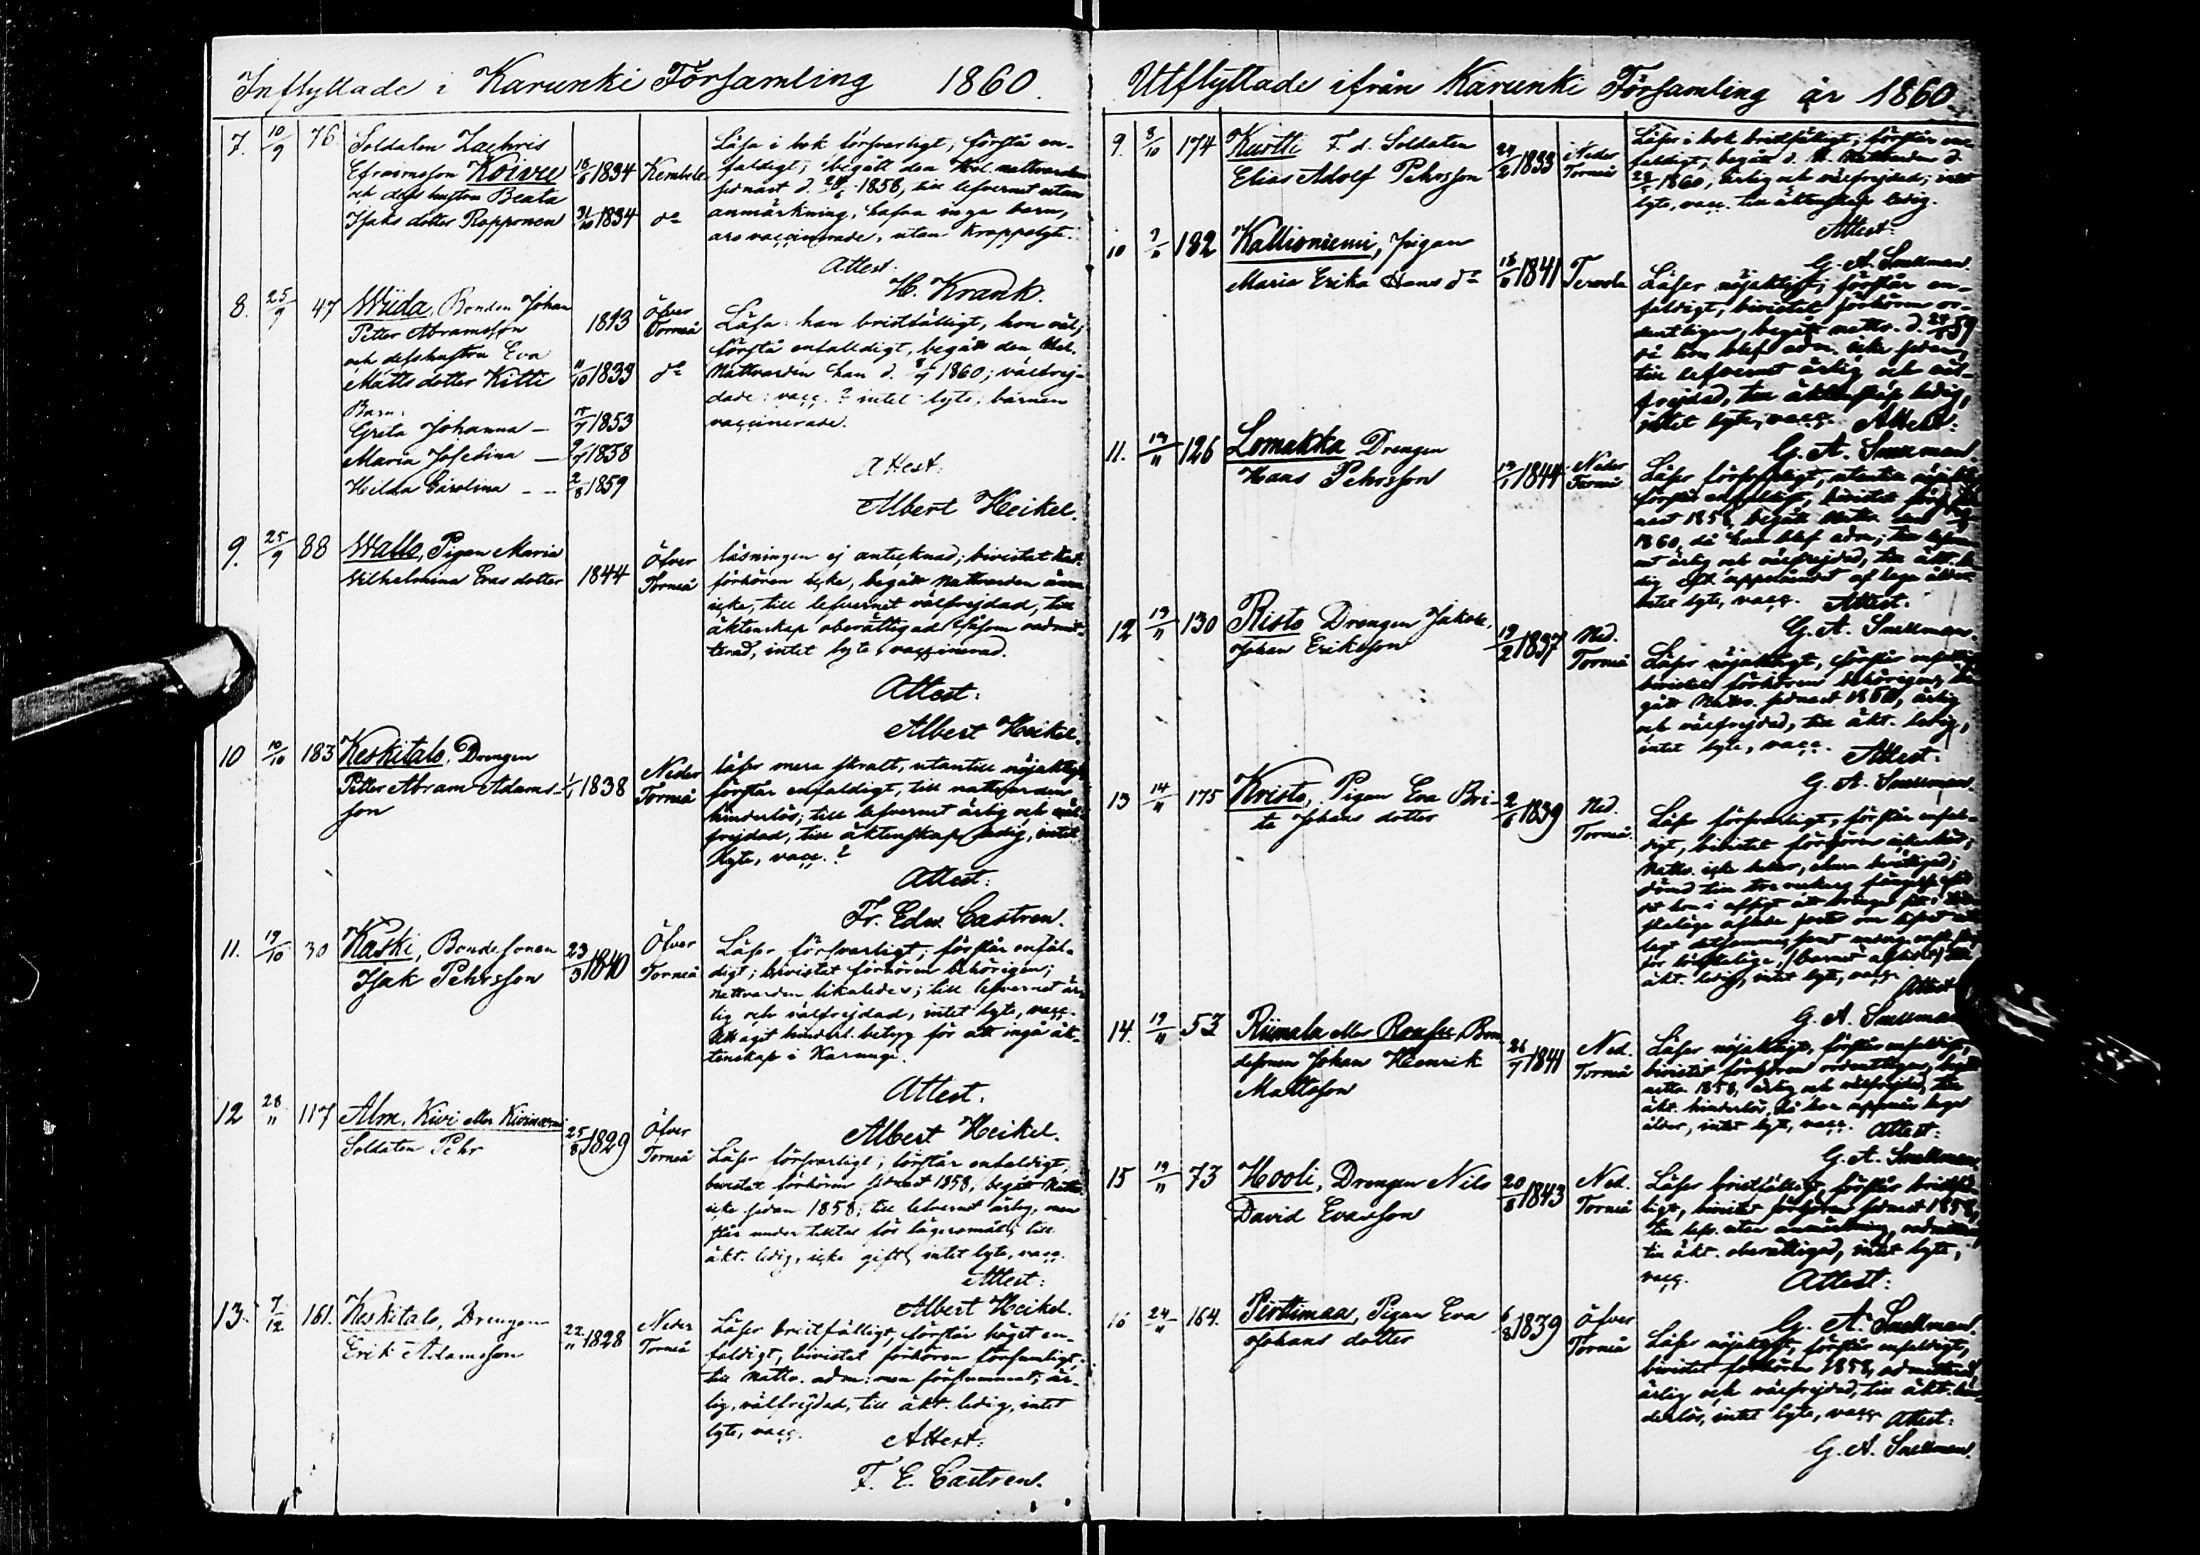 Inflyttade i Karunki Församling 1860.
7. 10/9 76. Soldaten Zachris
Efraimsson Koivu 1834 Kembele
och dess hustru Beata
Isaks dotter Ropponen 31/10 1834 do
Läsa i bok försvarligt, förstå en-
faldigt; begått den Hel. nattvarden
sednast d. 1858, till lefvernet utan
anmärkning, hafva inga barn,
äro vaccinerade, utan kroppslyte.
Attest:
H. Krank.
8. 25/9 47 Wiida, Bonden Johan
Petter Abramsson 1813 Öfver Torneå
och dess hustru Eva
Matts dotter Kitti 11/10 1833 do
Barn:
Greta Johanna — 1853
Maria Josefina — 1858
Hilda Carolina - - 2/8 1859
Läsa: han bristfälligt, hon väl;
förstå enfalldigt, begått den Hel.
Nattvarden han d. 1860; välfrej-
dade: vacc. ? intet lyte; barnen
vaccinerade.
Attest:
Albert Heikel.
9. 25/9 88 Wallo, Pigan Maria
Wilhelmina Evas dotter 1844 Öfver Torneå
läsningen ej antecknad; bivistat
förhören icke, begått Nattvarden ännu
icke, till lefvernet välfrejdad, till
äktenskap oberättigad såsom oadmit-
terad, intet lyte, vaccinerad.
Attest:
Albert Heikel.
10 10/10 183 Keskitalo, Drengen
Petter Abram Adams- 1/1 1838 Neder Torneå
son
läser mera skralt, utantill nöjaktigt
förstår enfaldigt, till nattvarden
hinderlös; till lefvernet ärlig och väl-
frejdad, till äktenskap ledig, intet
lyte, vacc. ?
Attest:
Fr. Edv. Castren.
11. 19/10 30 Kaski, Bondesonen
Isak Pehrsson 23/3 1840 Öfver Torneå
Läser försvarligt; förstår enfal-
digt; bivistat förhören behörigen;
nattvarden likaledes; till lefvernet är-
lig och välfrejdad, intet lyte, vacc.
Att aget hinderl. betyg för att ingå äk-
tenskap i Karungi.
Attest.
Albert Heikel.
12 28/11 117 Alm, Kivi eller Kivimaa
Soldaten Pehr 25/8 1829 Öfver Torneå
Läser försvarligt; förstår enfaldigt,
bivistat förhören sednast 1858, begått Nattv.
icke sedan 1858; till lefvernet ärlig, men
står under tilltal för lägersmål; till
äkt. ledig, icke gift; intet lyte, vacc.
Attest:
Albert Heikel.
13. 7/12 161. Keskitalo, Drengen
Erik Adamsson 22/11 1828 Neder Torneå
Läser bristfälligt, förstår höget en-
faldigt, bivistat förhören försumligt;
till Nattv. adm: men försummat; är-
lig, välfrejdad, till äkt. ledig, intet
lyte, vacc.
Attest:
F. E. Castren.
Utflyttade ifrån Karunki Församling år 1860.
9. 8/10 174 Kurtti F. d. Soldaten
Elias Adolf Pehrsson 24/2 1833 Neder Torneå
Läser i bok bristfälligt; förstår en-
faldigt, begått d. H. Nattvarden d.
1860, ärlig och välfrejdad; intet
lyte, vacc. till äktenskap ledig.
Attest:
G. A. Snellman.
10 182 Kallioniemi, Pigan
Maria Erika Hans dr 1841 Tervola
Läser nöjaktigt; förstår en-
faldigt, bivistat förhören or-
dentligen, begått nattv. d. 59
då hon blef adm. icke sedan,
till lefvernet ärlig och väl-
frejdad, till äktenskap ledig,
intet lyte, vacc. Attest:
G. A. Snellman.
11. 126 Lomakka Drengen
Hans Pehrsson 1844 Neder Torneå
Läser försvarligt, utantill
förstår enfaldigt, bivistat
1858, begått
1860, då han blef adm;
ärlig och välfrejdad, till äkt.
intet lyte, vacc. Attest.
G. A. Snellman.
12 130 Risto Drengen Jakob
Johan Eriksson 19/2 1837 Ned. Torneå
Läser nöjaktigt, förstår
bivistat förhören behörigen,
gått Nattv. sednast ärlig
och välfrejdad, till äkt. ledig,
intet lyte, vacc. Attest:
G. A. Snellman
13 14/11 175 Kristo, Pigan Eva Bri-
ta Johans dotter 1839 Ned. Torneå.
Läser försvarligt; förstår enfal-
digt, bivistat förhören
Nattv. icke
äkt. ledig, intet lyte, vacc.
Attest
G. A. Snellman
14. 19/11 53 Riimala eller Bon
desonen Johan Henrik 1841 Ned. Torneå
Mattsson
Läser nöjaktigt, förstår enfaldigt,
bivistat förhören ordentligen,
1858, ärlig och välfrejdad, till
äkt. hinderlös,
ålder, intet lyte, vacc. Attest:
G. A. Snellman
15 19/11 73 Hooli, Drengen Nils
David Evasson 20/8 1843 Ned. Torneå
Läser bristfälligt, förstår
ligt, bivistat förhören sednast 1858,
till lefv. utan anmärkning,
till äkt. oberättigad, intet lyte,
vacc. Attest:
G. A. Snellman.
16 24/11 164. Pirttimaa, Pigan Eva
Johans dotter 6/8 1839 Öfver Torneå
Läser nöjaktigt, förstår enfaldigt,
bivistat förhören 1858, admitterad,
ärlig och välfrejdad, till äkt. hin-
derlös, intet lyte, vacc. Attest:
G. A. Snellman.